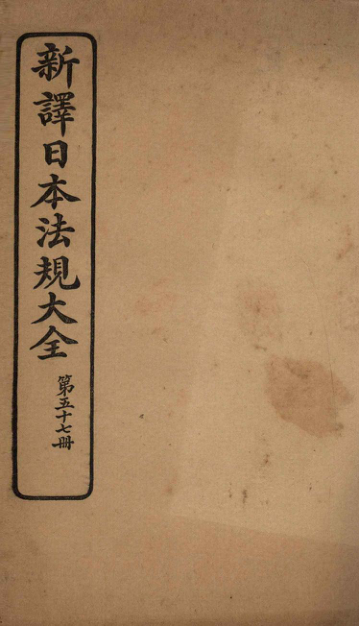 新譯日本法規大全
第五十七冊